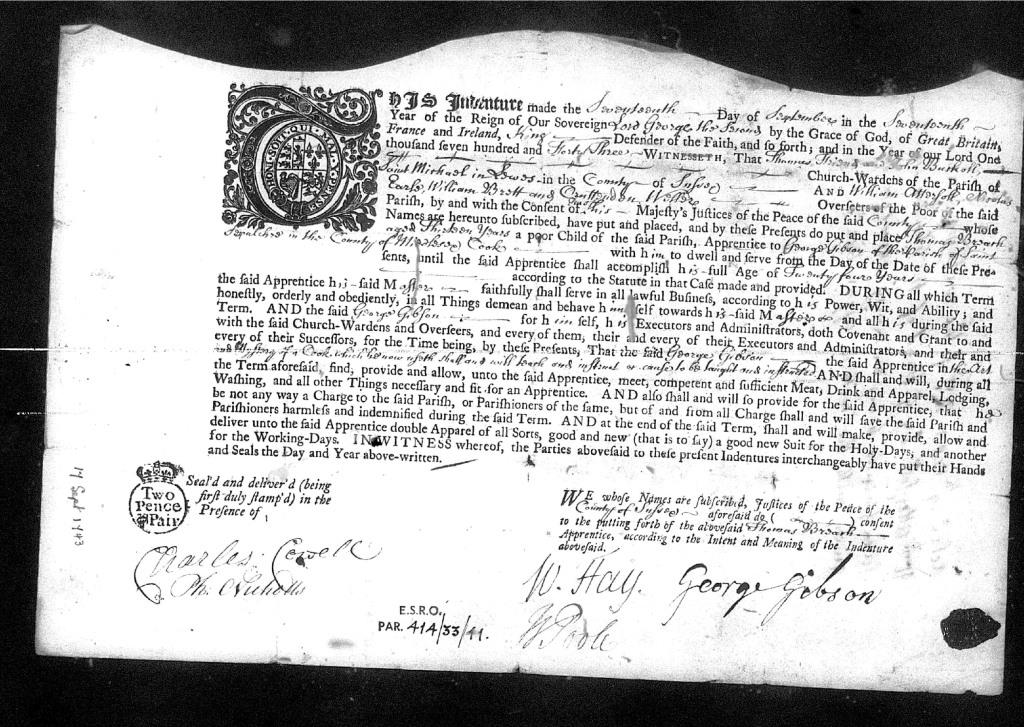 HONI·SOIT·QUI·MAL·Y·PENSE
THIS Indenture made the Seventeenth Day of September in the Seventeenth
Year of the Reign of Our Sovereign Lord George the Second by the Grace of God, of Great Britain,
France and Ireland, King Defender of the Faith, and so forth; and in the Year of our Lord One
thousand seven hundred and Forty Three WITNESSETH, That Thomas Friend and John Burkoll,
Church-Wardens of the Parish of
Saint Michael in Lewes in the County of Sussex AND William Attersoll, Nicolas
Earle, William Brett and Weller Overseers of the Poor of the said
Parish, by and with the Consent of His Majesty's Justices of the Peace of the said County whose
Names are hereunto subscribed, have put and placed, and by these Presents do put and place Thomas Breach
aged Thirteen Years a poor Child of the said Parish, Apprentice to George Gibson of the Parish of Saint
Sepulchre in the County of Middlesex Cook with him to dwell and serve from the Day of the Date of these Pre-
sents, until the said Apprentice shall accomplish his full Age of Twenty four Years
according to the Statute in that Case made and provided. DURING all which Term
the said Apprentice his said Master faithfully shall serve in all lawful Business, according to his Power, Wit, and Ability; and
honestly, orderly and obediently, in all Things demean and behave himself towards his said Master and all his during the said
Term. AND the said George Gibson for himself, his Executors and Administrators, doth Covenant and Grant to and
with the said Church-Wardens and Overseers, and every of them, their and every of their Executors and Administrators, and their and
every of their Successors, for the Time being, by these Presents, That the said George Gibson the said Apprentice in the Art
and Mystery of a Cook which he now useth shall and will teach and instruct or cause to be taught and instructed AND shall and will, during all
the Term aforesaid, find, provide and allow, unto the said Apprentice, meet, competent and sufficient Meat, Drink and Apparel, Lodging,
Washing, and all other Things necessary and fit for an Apprentice. AND also shall and will so provide for the said Apprentice, that he
be not any way a Charge to the said Parish, or Parishioners of the same, but of and from all Charge shall and will save the said Parish and
Parishioners harmless and indemnified during the said Term. AND at the end of the said Term, shall and will make, provide, allow and
deliver unto the said Apprentice double Apparel of all Sorts, good and new (that is to say) a good new Suit for the Holy-Days, and another
for the Working-Days. IN WITNESS whereof, the Parties abovesaid to these present Indentures interchangeably have put their Hands
and Seals the Day and Year above-written.
Two
Pence
Pair
Seal'd and deliver'd (being
first duly stamp'd) in the
Presence of
Charles Cowell
Tho: Nicholls
WE whose Names are subscribed, Justices of the Peace of the
County of Sussex aforesaid do consent
to the putting forth of the abovesaid Thomas Breach
Apprentice, according to the Intent and Meaning of the Indenture
abovesaid.
W. Hay. George Gibson
W Poole
E.S.R.O.
PAR. 414/33/41.
17 Sept 1743